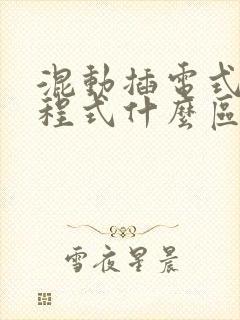 混動插電式
程式什麼區
雪夜星晨